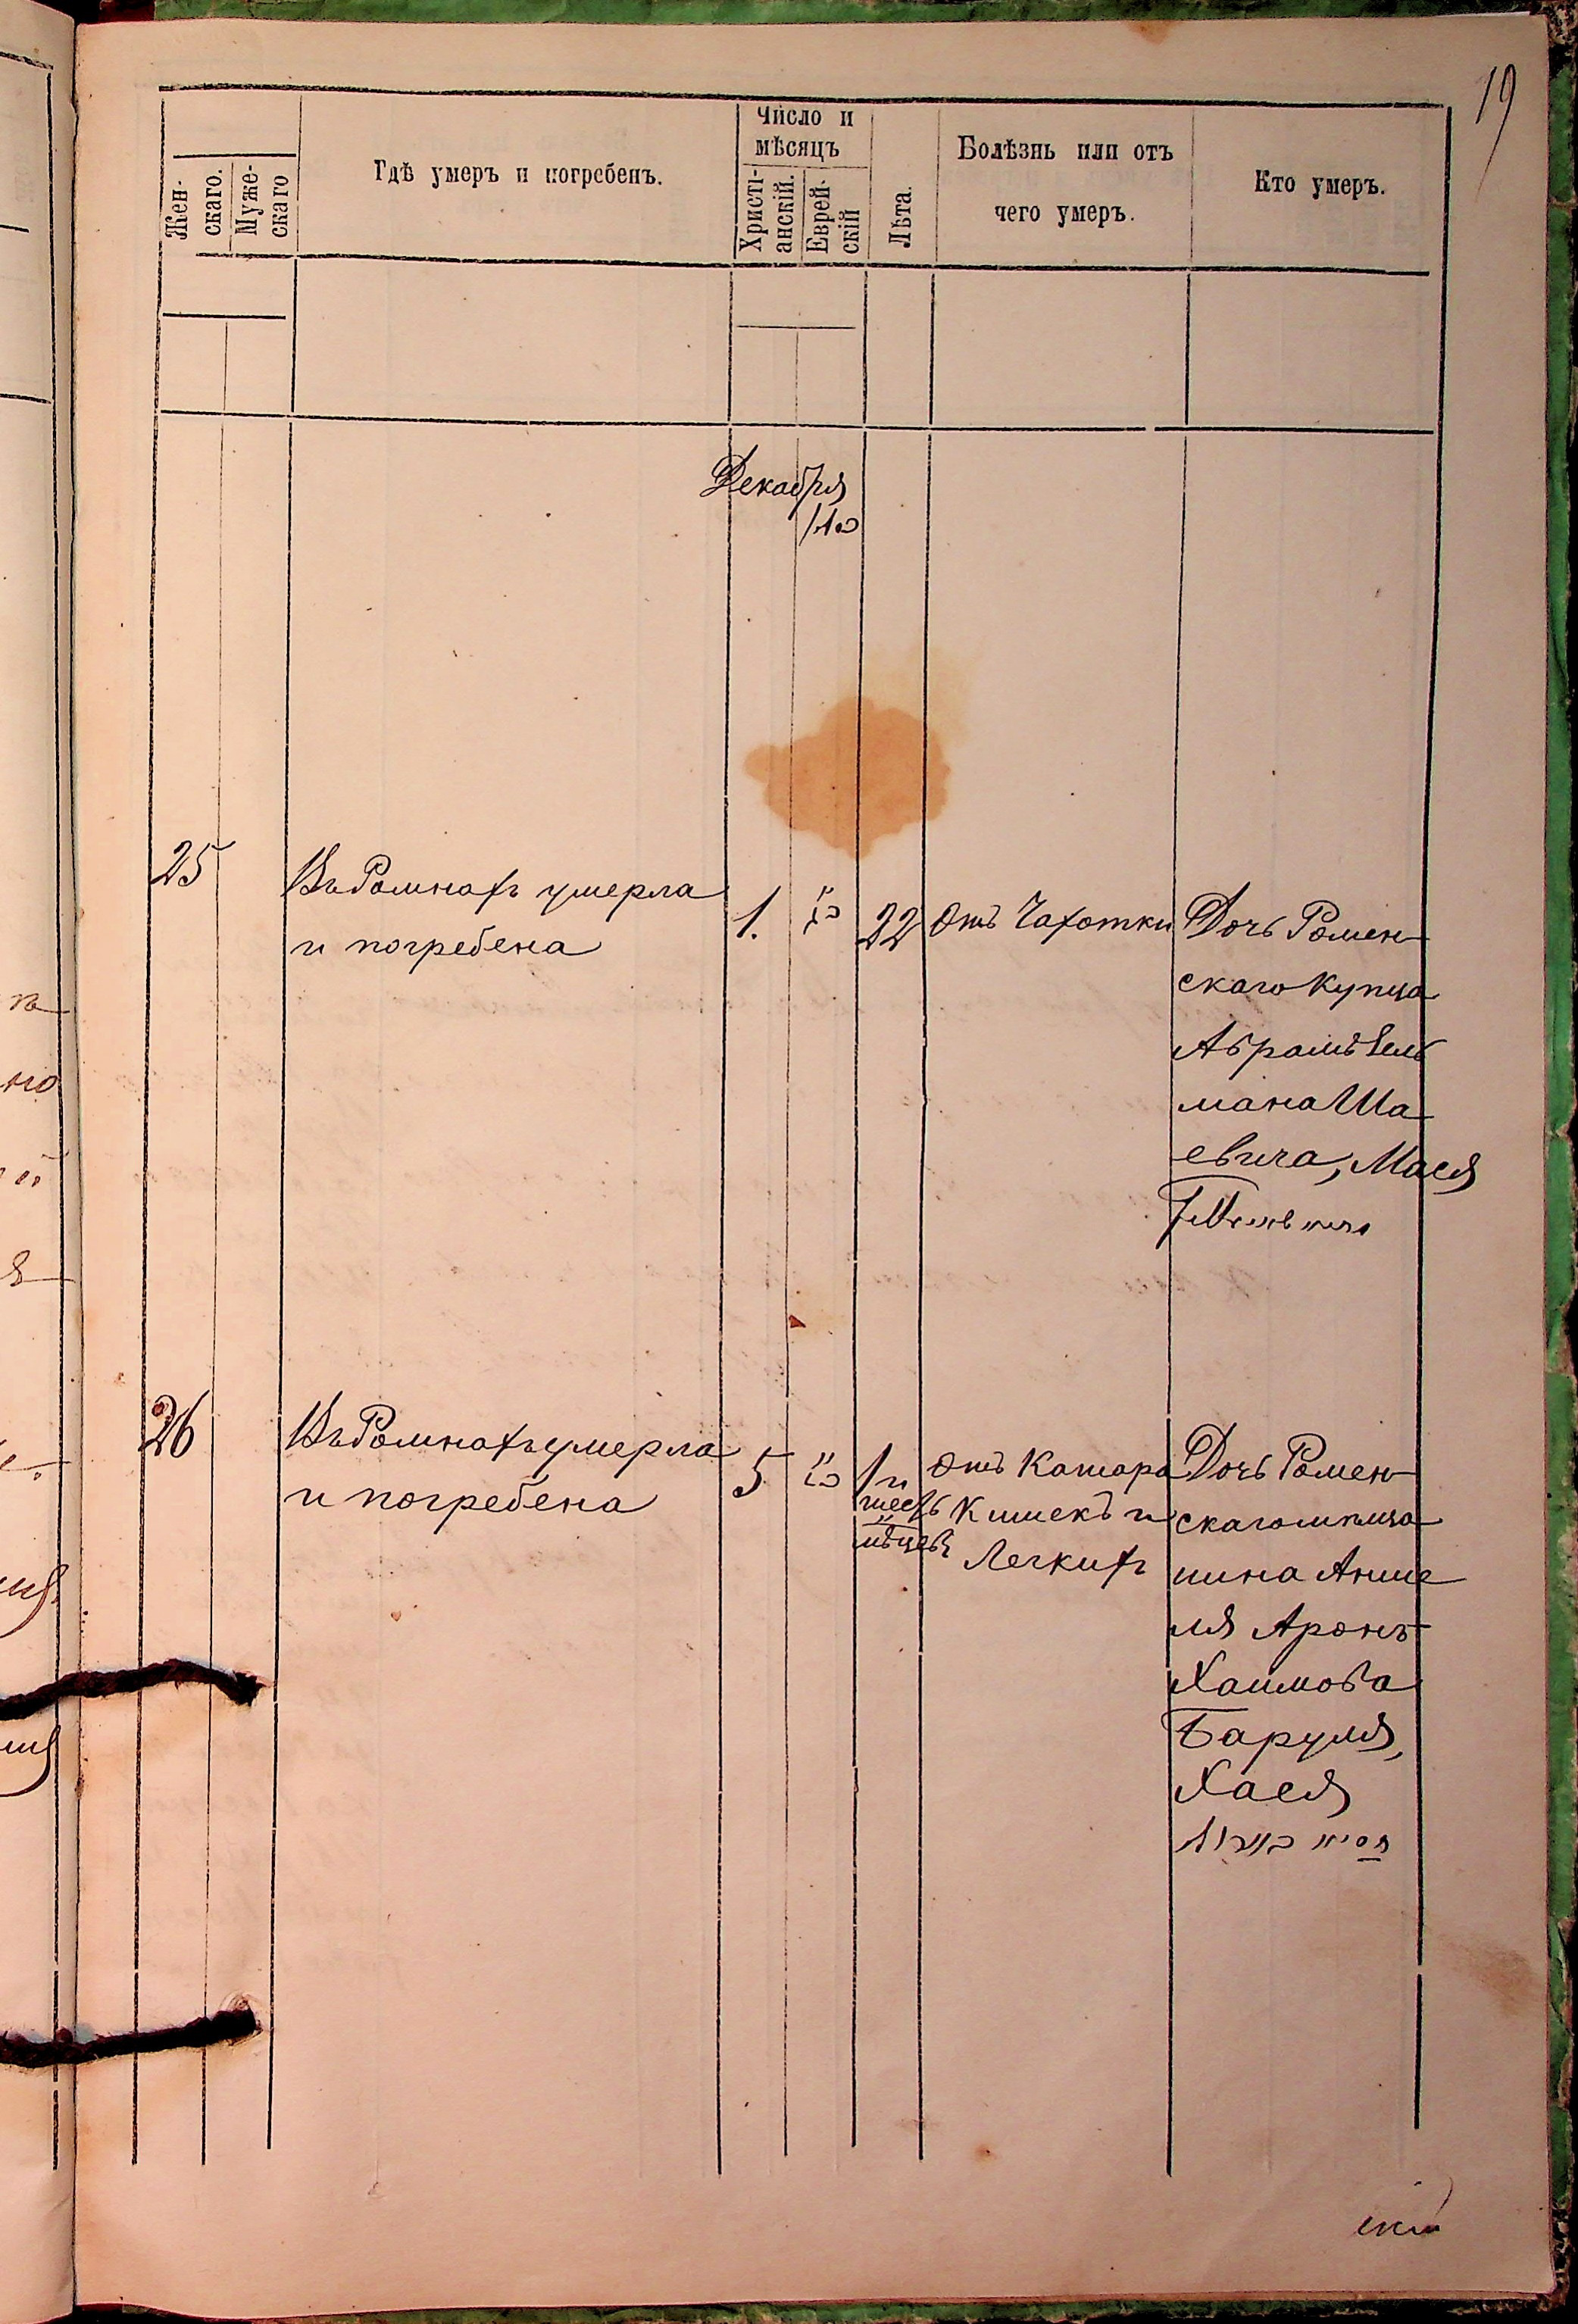 19
Жен-
скаго.
Муже-
скаго
Гдѣ умеръ и погребенъ.
Число и
мѣсяцъ
Христі-
анскій.
Еврей-
скій
Лѣта.
Болѣзнь или отъ
чего умеръ.
Кто умеръ.
Декабря
25
Въ Ромнахъ умерла
и погребена
1.
22
Отъ Чахотки
Дочь Ромен-
скаго Купца
Абрамъ Зель
мана Ша-
евича, Мася
26
Въ Ромнахъ умерла
и погребена
5
1 и
шесть
мѣцевъ
Отъ Катара
Кишекъ и
Легкихъ
Дочь Ромен-
скаго мѣща-
нина Анше
ля Аронъ
Хаимова
Баруля,
Хася